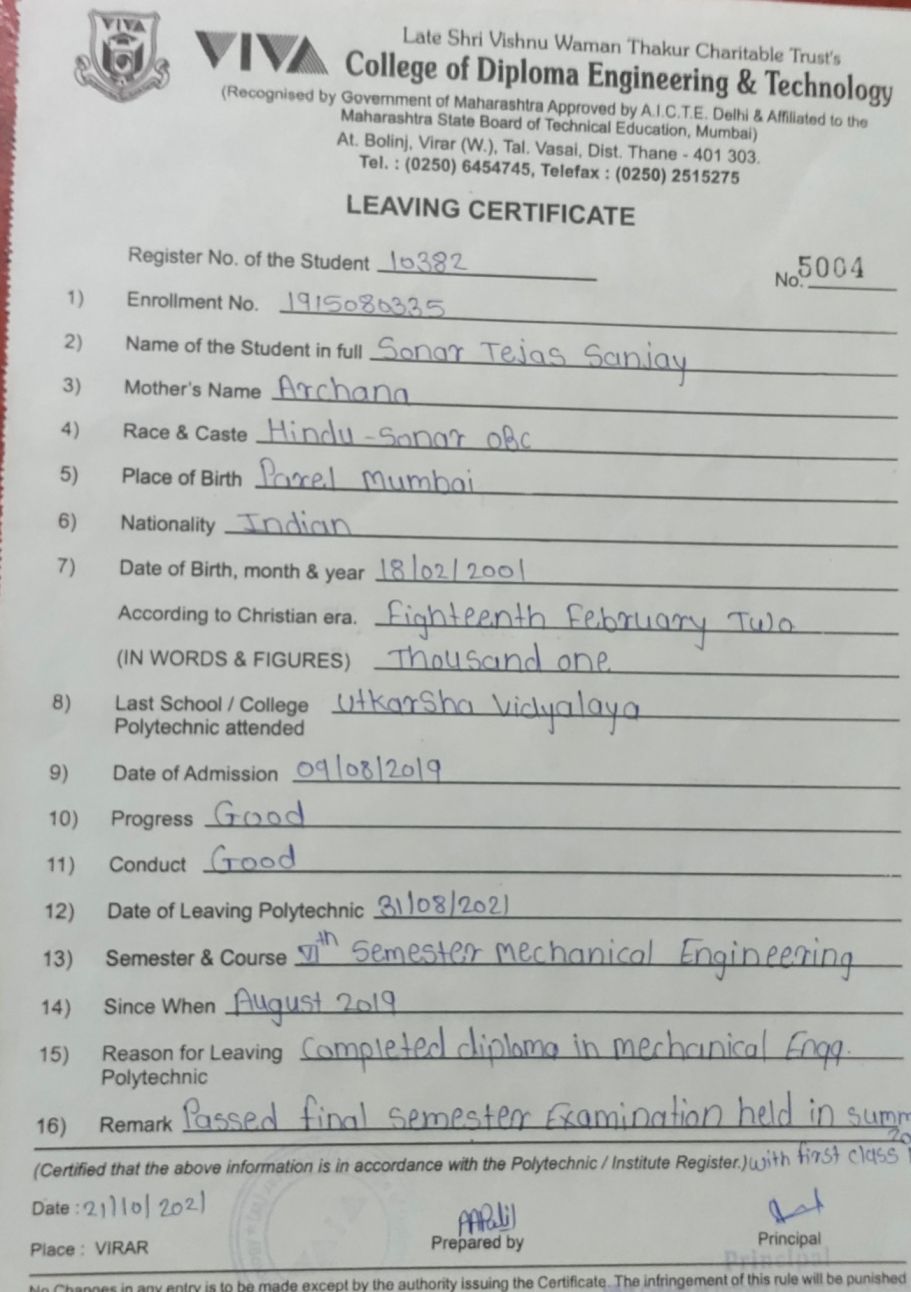 VIVA
VIVA
Late Shri Vishnu Waman Thakur Charitable Trust's
College of Diploma Engineering & Technology
(Recognised by Government of Maharashtra Approved by A.I.C.T.E. Delhi & Affiliated to the
Maharashtra State Board of Technical Education, Mumbai)
At. Bolinj, Virar (W.), Tal. Vasai, Dist. Thane - 401 303.
Tel. : (0250) 6454745, Telefax : (0250) 2515275
LEAVING CERTIFICATE
Register No. of the Student 10382 No. 5004
1) Enrollment No. 1915080335
2) Name of the Student in full Sonar Tejas Sanjay
3) Mother's Name Archana
4) Race & Caste Hindu - Sonar OBC
5) Place of Birth Parel Mumbai
6) Nationality Indian
7) Date of Birth, month & year 18/02/2001
According to Christian era. Eighteenth February Two
(IN WORDS & FIGURES) Thousand one
8) Last School / College Utkarsha Vidyalaya
Polytechnic attended
9) Date of Admission 09/08/2019
10) Progress Good
11) Conduct Good
12) Date of Leaving Polytechnic 31/08/2021
13) Semester & Course VIth Semester mechanical Engineering
14) Since When August 2019
15) Reason for Leaving Completed diploma in mechanical Engg.
Polytechnic
16) Remark Passed final semester Examination held in summ
20
(Certified that the above information is in accordance with the Polytechnic / Institute Register.) with first class
Date : 21/10/2021
Prepared by Principal
Place : VIRAR
Principal
No Changes in any entry is to be made except by the authority issuing the Certificate. The infringement of this rule will be punished